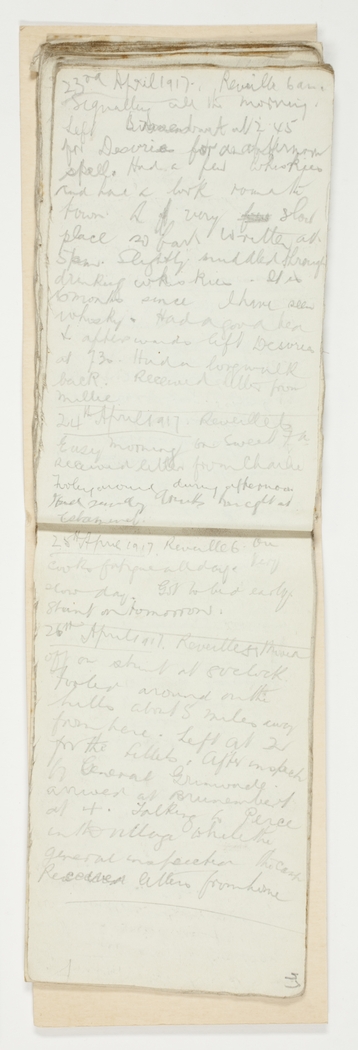 23rd April 1917. Reveille 6 am.
Signalling all the morning.
Left at 2 45
for Desvres for an afternoon
spell. Had a few whiskies
and have a look round the
town. A very slow
place so far. Written at
5 pm. Slightly muddled through
drinking whiskies. It is
months since I have seen
whisky. Had a good tea
& afterwards left Desvres
at 7 3. Had a long walk
back. Received letter from
Millie
24th April 1917. Reveille 6
Easy morning on
received letter from Charlie
Fooling around during afternoon
25th April 1917. Reveille 6. On
Cooks fatigue all day. Very
slow day. Got to bed early
stunt on tomorrow.
26th April 1917. Reveille 5
off on stunt at 8 oclock
Fooled around on the
hills about 5 miles away
from here. Left at 2
for the billets, after inspect
by General
arrived at Brunembert
at 4. Talking to Perce
in the village while the
general inspection
Received letters from home
3